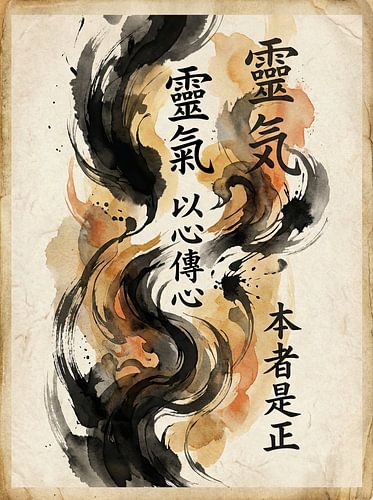 靈気
本者是正
靈氣
以心傳心